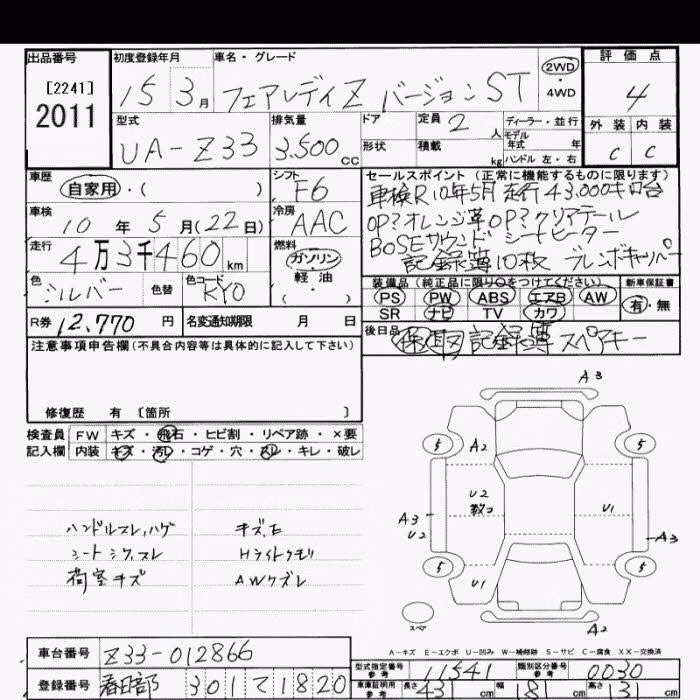 出品番号 初度登録年月 車名・グレード 評価点
[2241] 15 3月 フェアレディZ バージョンST 2WD 4
2011 4WD
型式 排気量 ドア 定員 2 人 ディーラー・並行 外装 内装
UA-Z33 3.500cc 形状 積載 kg モデル年式 年式 C C
ハンドル 左・右
車歴 シフト セールスポイント (正常に機能するものに限ります)
自家用・( ) F6 車検R10年5月 走行43,000キロ台
車検 冷房 OP?オレンジ革OP?クリアテール
10年5月(22日) AAC BOSEサウンド シートヒーター
走行 燃料 記録簿10枚 ブレンボキャリパー
4万3千460km ガソリン・軽油 ( )
色 色替 色コード 装備品(純正品に限り○をつけてください) 新車保証書
シルバー KY0 PS PW ABS エアB AW 有・無
SR ナビ TV カワ
R券 12,770円 名変通知期限 月 日 後日品
保 取 記録簿 スペアキー
注意事項申告欄(不具合内容等は具体的に記入して下さい)
修復歴 有 〔箇所 〕
検査員 FW キズ・飛石・ヒビ割・リペア跡・×要
記入欄 内装 キズ・汚レ・コゲ・穴・スレ・キレ・破レ
A3
5 A2 5
U2 U1
A3 A3
U2
5 5
U1
スペア
A2
ハンドルスレ,ハゲ キズ,E
シートシワ,スレ Hライトクモリ
荷室キズ AWクズレ
A-キズ E-エクボ U-凹み W-補修跡 S-サビ C-腐食 XX-交換済
車台番号 Z33-012866
型式指定番号 参考 11541 類別区分番号 参考 0030
登録番号 春日部 301 て 1820
車庫証明用 参考 長さ 431cm 幅 181cm 高さ 31cm